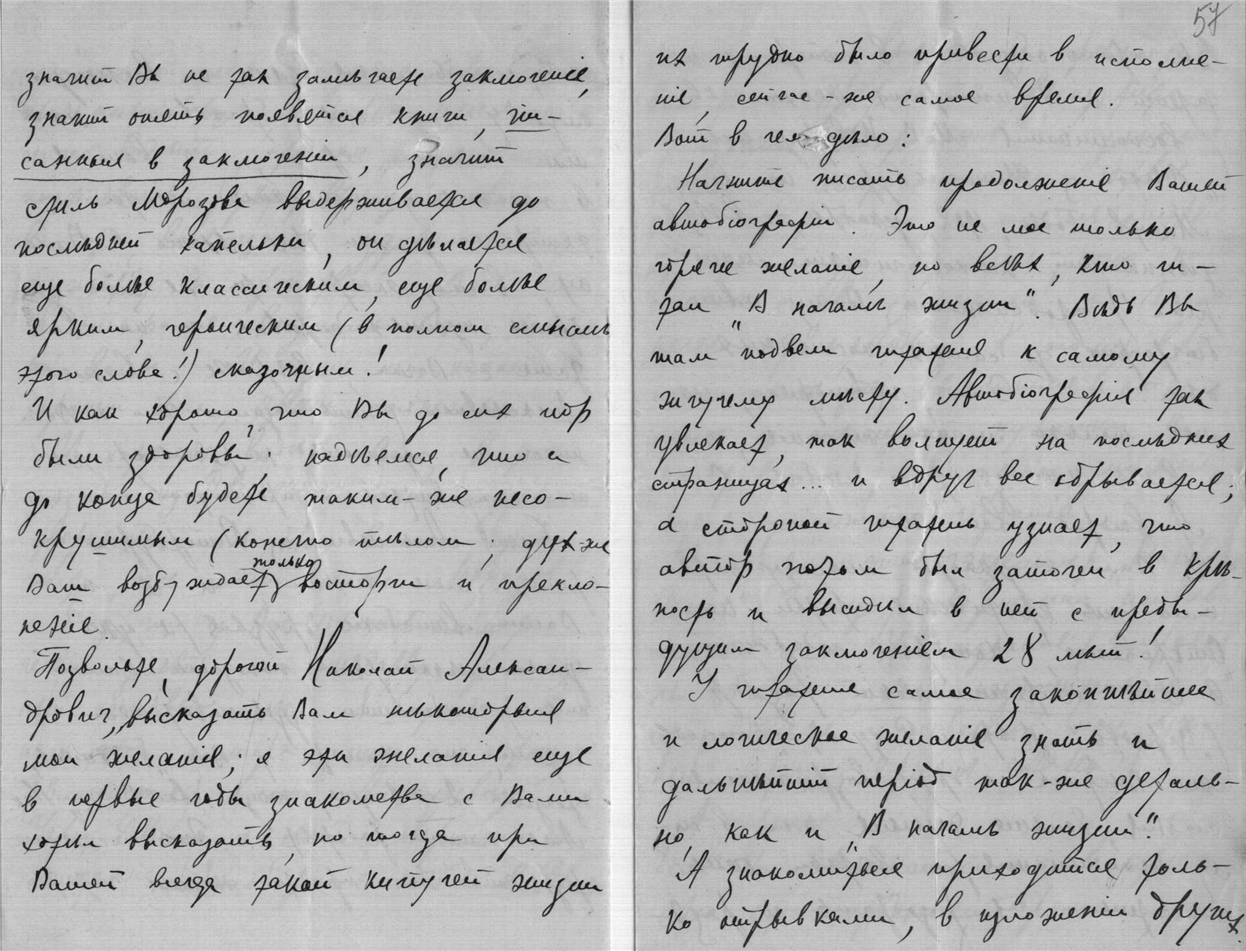 значит Вы не так замѣчаете заключеніе,
значит опять появятся книги, пи-
санныя в заключеніи, значит
стиль Морозова выдерживается до
послѣдней капельки, он дѣлается
еще болѣе классическим, еще болѣе
ярким, героическим (в полном смыслѣ
этого слова!) сказочным!
И как хорошо, что Вы до сих пор
были здоровы; надѣемся, что и
до конца будете таким-же несо-
крушимым (конечно тѣлом; дух-же
Ваш возбуждает только восторги и прекло-
неніе.
Позвольте, дорогой Николай Алексан-
дрович, высказать Вам нѣкоторыя
мои желанія; я эти желанія еще
в первые годы знакомства с Вами
хотѣл высказать, но тогда при
Вашей всегда такой кипучей жизни
57
их трудно было привести в исполне-
ніе, сейчас-же самое время.
Вот в чем дѣло:
Начните писать продолженіе Вашей
автобіографіи. Это не мое только
горячее желаніе, но всѣх, кто чи-
тал "В началѣ жизни". Вѣдь Вы
там подвели читателя к самому
жгучему мѣсту. Автобіографія так
увлекает, так волнует на послѣдних
страницах... и вдруг все обрывается;
а стороной читатель узнает, что
автор потом был заточен в крѣ-
пость и высидѣл в ней с преды-
дущим заключеніем 28 лѣт!
У читателя самое законнѣйшее
и логическое желаніе знать и
дальнѣйшій період так-же деталь-
но, как и "В началѣ жизни".
А знакомиться приходится толь-
ко отрывками, в изложеніи других.